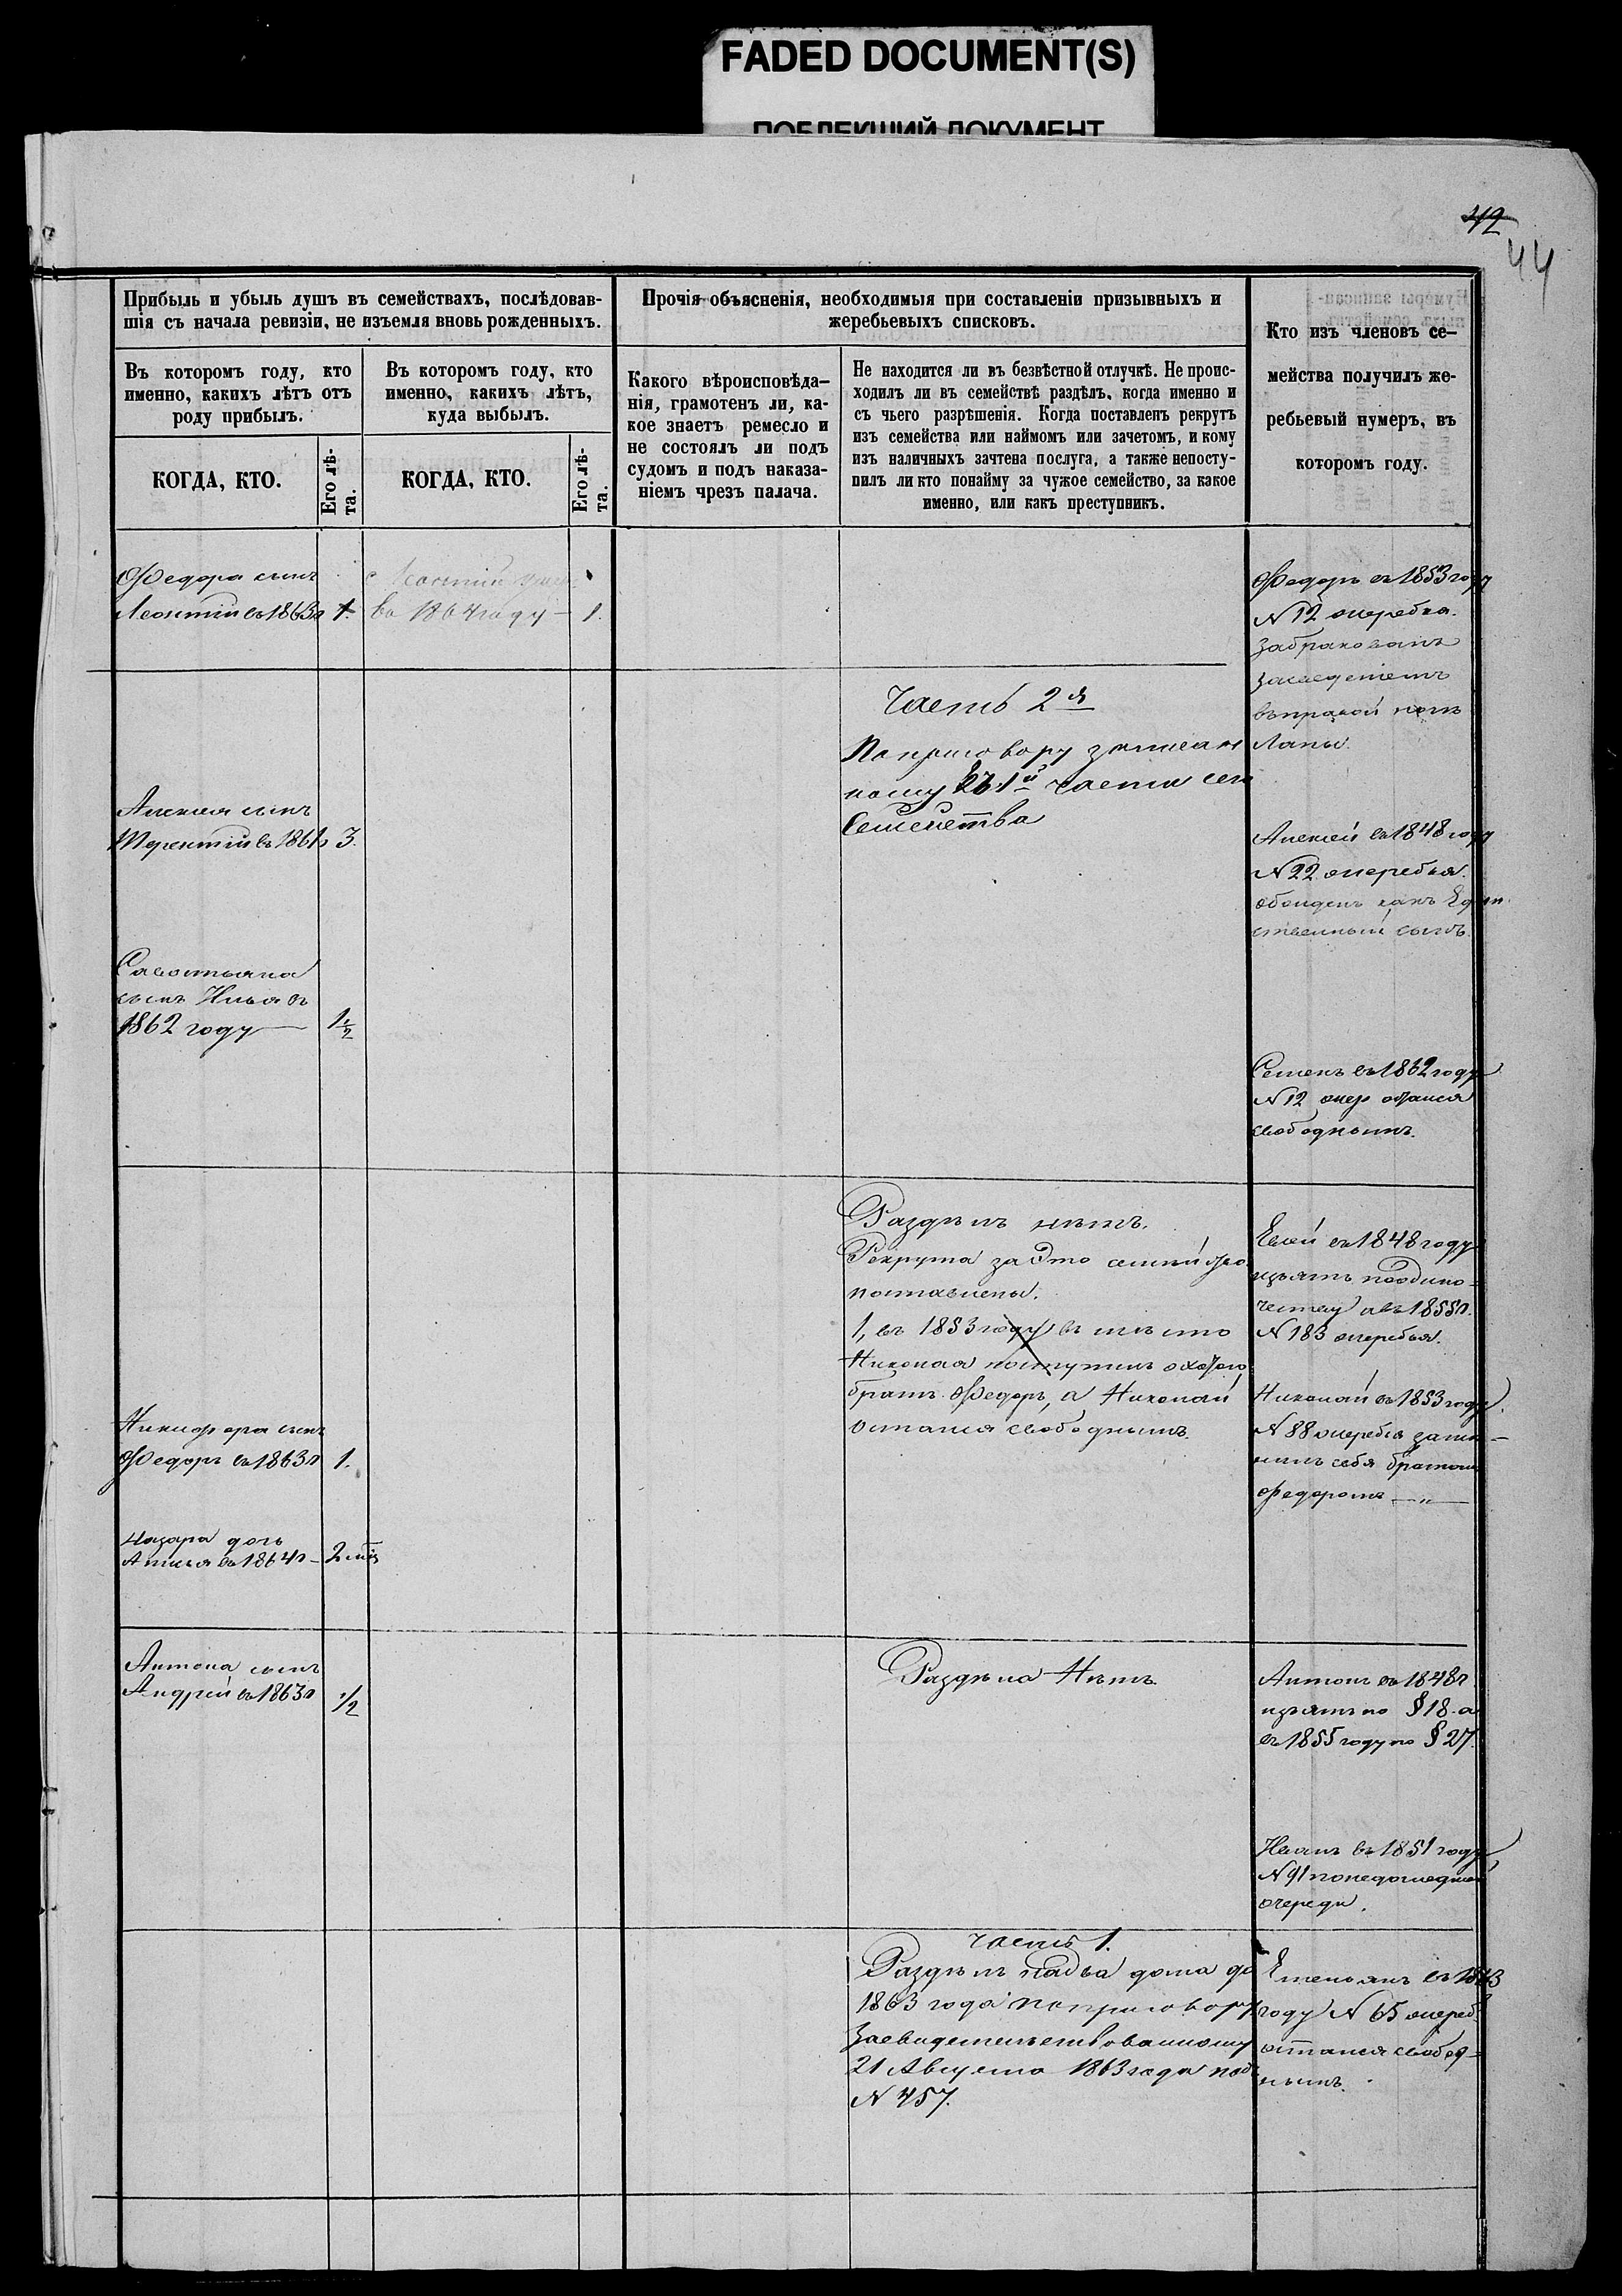 FADED DOCUMENT(S)
ПОБЛЕКШИЙ ДОКУМЕНТ
42
44
Прибыль и убыль душъ въ семействахъ, послѣдовав-
шія съ начала ревизіи, не изъемля вновь рожденныхъ.
Въ которомъ году, кто
именно, какихъ лѣтъ отъ
роду прибылъ.
КОГДА, КТО.
Его лѣ-
та.
Въ которомъ году, кто
именно, какихъ лѣтъ,
куда выбылъ.
КОГДА, КТО.
Его лѣ-
та.
Прочія объясненія, необходимыя при составленіи призывныхъ и
жеребьевыхъ списковъ.
Какого вѣроисповѣда-
нія, грамотенъ ли, ка-
кое знаетъ ремесло и
не состоялъ ли подъ
судомъ и подъ наказа-
ніемъ чрезъ палача.
Не находится ли въ безвѣстной отлучкѣ. Не проис-
ходилъ ли въ семействѣ раздѣлъ, когда именно и
съ чьего разрѣшенія. Когда поставленъ рекрутъ
изъ семейства или наймомъ или зачетомъ, и кому
изъ наличныхъ зачтена послуга, а также непосту-
пилъ ли кто понайму за чужое семейство, за какое
именно, или какъ преступникъ.
Кто изъ членовъ се-
мейства получилъ же-
ребьевый нумеръ, въ
которомъ году.
Федора сынъ
Леонтий въ 1863 г 1.
Леонтий
въ 1864 году — 1.
Федоръ въ 1853 году
№ 12 жеребья.
забракованъ
въ правой
Часть 2я
По приговору записан
ному въ 1й части сего
Семейства
Алексея сынъ
Терентий въ 1861 г 3.
Алексей въ 1848 году
№ 22 жеребья.
обойденъ какъ Един
ственный сынъ.
Савостьяна
сынъ Илья въ
1862 году — 1 1/2
Семенъ въ 1862 году
№ 12 жер остался
свободнымъ.
Раздѣлъ нѣтъ.
Рекрута за это
поставлены.
1, въ 1853 году въ мѣсто
Николая поступилъ охотою
братъ Федоръ, а Николай
остался свободнымъ.
въ 1848 году
изъятъ по одино-
честву а въ 1855 г.
№ 183 жеребья.
Николай въ 1853 году.
№ 88 жеребья заме-
нилъ себя братомъ
Федоромъ — " —
Никифора сынъ
Федоръ въ 1863 г 1.
Назара дочь
въ 1864 г — 2 мѣс
Антона сынъ
Андрей въ 1863 г 1/2
Раздѣла Нѣтъ.
Антонъ въ 1848 г
изъятъ по § 18. а
въ 1855 году по § 27.
Иванъ въ 1851 году
№ 91 по недошедшей
очереди.
Часть 1.
Раздѣлъ на два дома до
1863 года по приговору
Засвидетельствованному
21 Августа 1863 года подъ
№ 457.
Емельянъ въ
году № 65 жереб.
остался свобод-
нымъ.